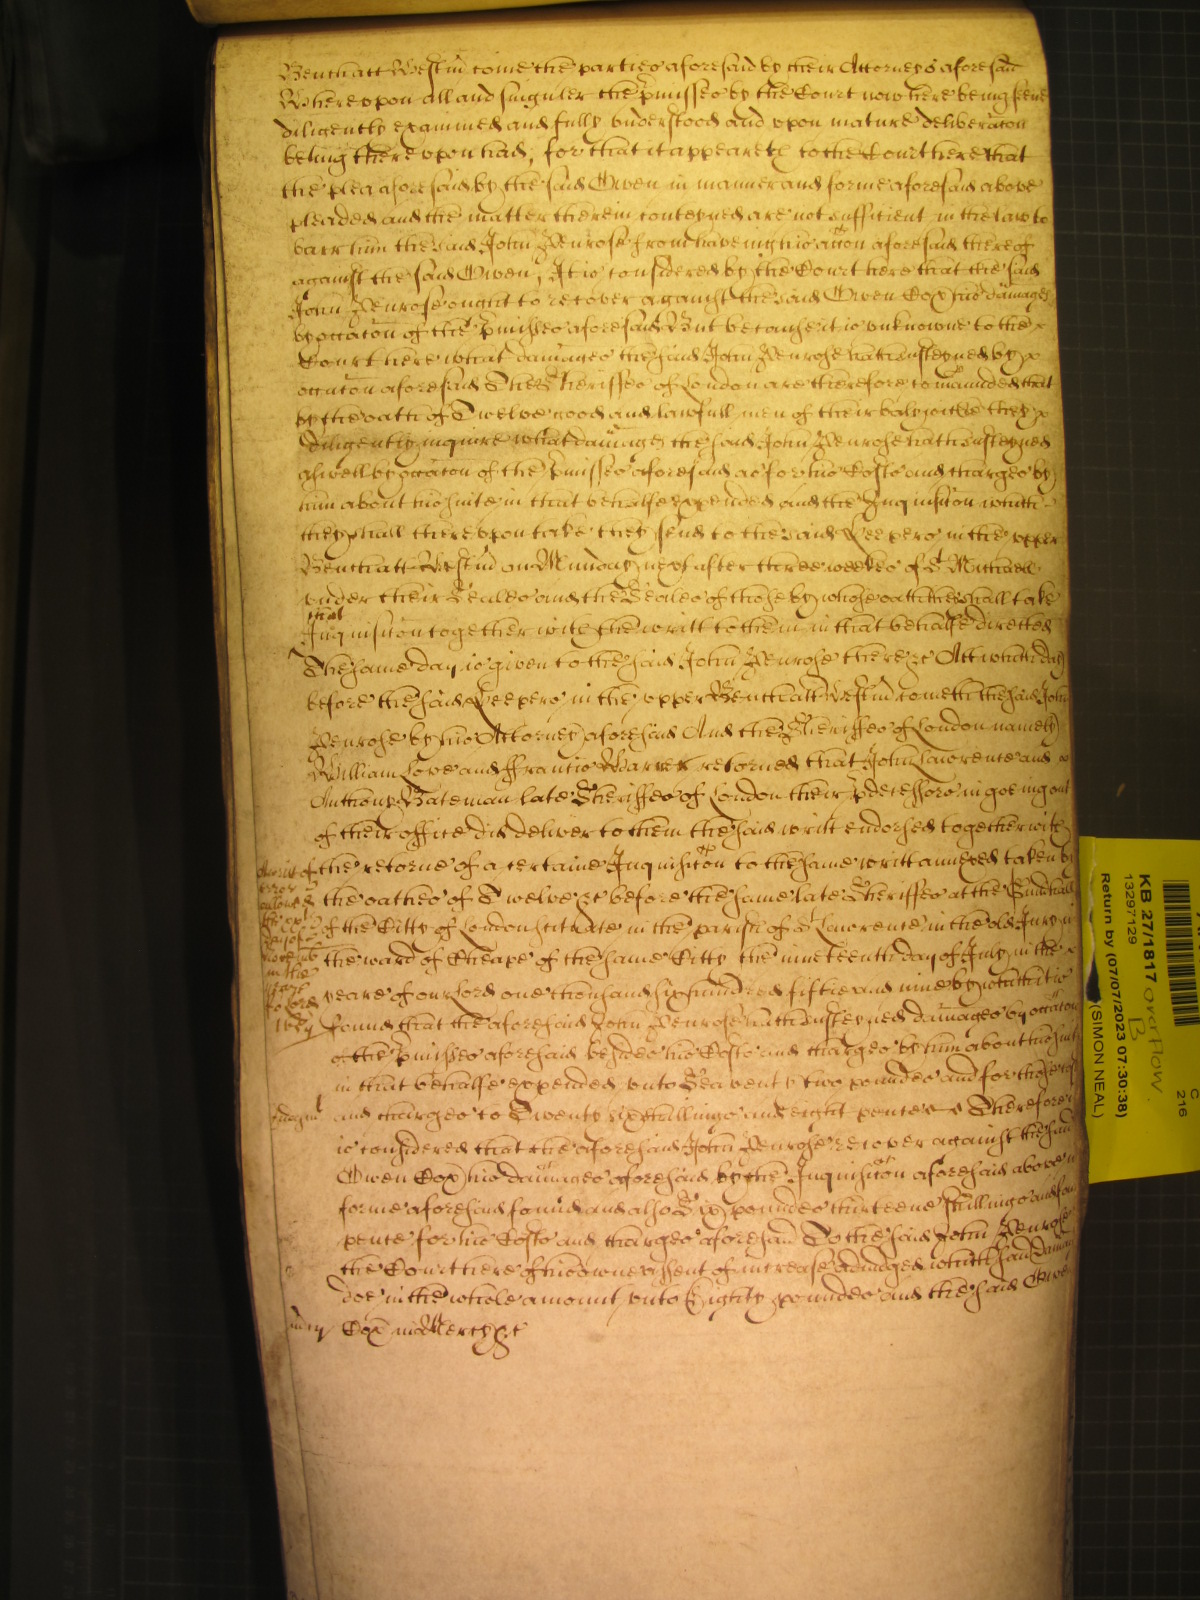 Bench att Westm̄ come the parties aforesaid by their Attorneys aforesaid
Whereupon all and singuler the p̄misses by the Court now here being seene
diligently examined and fully understood and upon mature deliberac̄on
being thereupon had, for that it appeareth to the Court here that
the plea aforesaid by the said Owen in manner and forme aforesaid above
pleaded and the matter therein conteyned are not sufficient in the law to
barr him the said John Penrose from haveing his acc̄on aforesaid thereof
against the said Owen, It is considered by the Court here that the said
John Penrose ought to recover against the said Owen Cox his damages
by occac̄on of the p̄misses aforesaid But because it is unknowne to the
Court here what damages the said John Penrose hath susteyned by
occac̄on aforesaid The Sheriffes of London are therefore com̄aunded that
by the oath of Twelve good and lawfull men of their balywicke they
diligently inquire what damages the said John Penrose hath susteyned
aswell by occac̄on of the p̄misses aforesaid as for his Costs and charges by
him about his suite in that behalfe expended and the Inquisic̄on which
they shall thereupon take they send to the said Keepers in the upper
Bench att Westm̄ on Munday next after three weekes of S Michaell
under their Seales and the Seales of those by whose oath they shall take
that
Inquisic̄on together with the writt to them in that behalfe directed
The same day is given to the said John Penrose there &c Att which day
before the said Keepers in the upper Bench att Westm̄ cometh the said John
Penrose by his Attorney aforesaid And the Sheriffes of London namely
William Love and ffrancis Warner retorned that John Lawrence and
Anthony Bateman late Sheriffes of London their p̄decessors in goeing out
of their office did deliver to them the said writt endorsed together with
the retorne of a certaine Inquisic̄on to the same writt annexed taken by
the oathes of Twelve &c before the same late Sheriffes at the Guildhall
of the Citty of London scituate in the parish of S Lawrence in the old Jury in
the ward of Cheape of the same Citty the nineteenth day of July in the
yeare of our Lord one thousand six hundred fiftie and nine by which it is
found that the aforesaid John Penrose hath susteyned damages by occac̄on
of the p̄misses aforesaid besides his Costs and charges by him about his suit
in that behalfe expended unto Seaventy two poundes and for those costs
and charges to Twenty six shillings and eight pence Therefore it
is considered that the aforesaid John Penrose recover against the said
Owen Cox his damages aforesaid by the Inquisic̄on aforesaid above in
forme aforesaid found and also Six poundes thirteene shillings and four
pence for his Costs and charges aforesaid To the said John Penrose
the Court here of his owne assent of increase adiudged which said damages
doe in the whole amount unto Eighty poundes and the said Owen
Cox in Mercy &c
KB 27/1817 overflow
B
13297129
Return by (07/07/2023 07:30:38)
(SIMON NEAL)
C
216